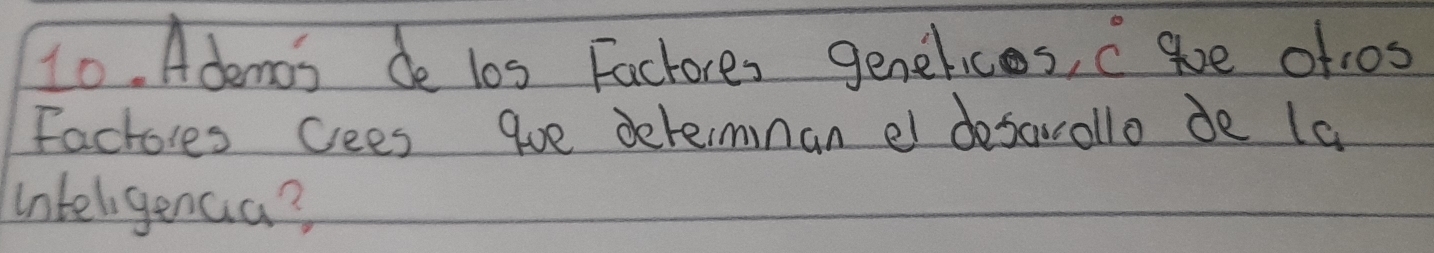 10. Ademós de los Factores genéticos, ¿ que otros
Factores crees que determinan el desarrollo de la
inteligencia?